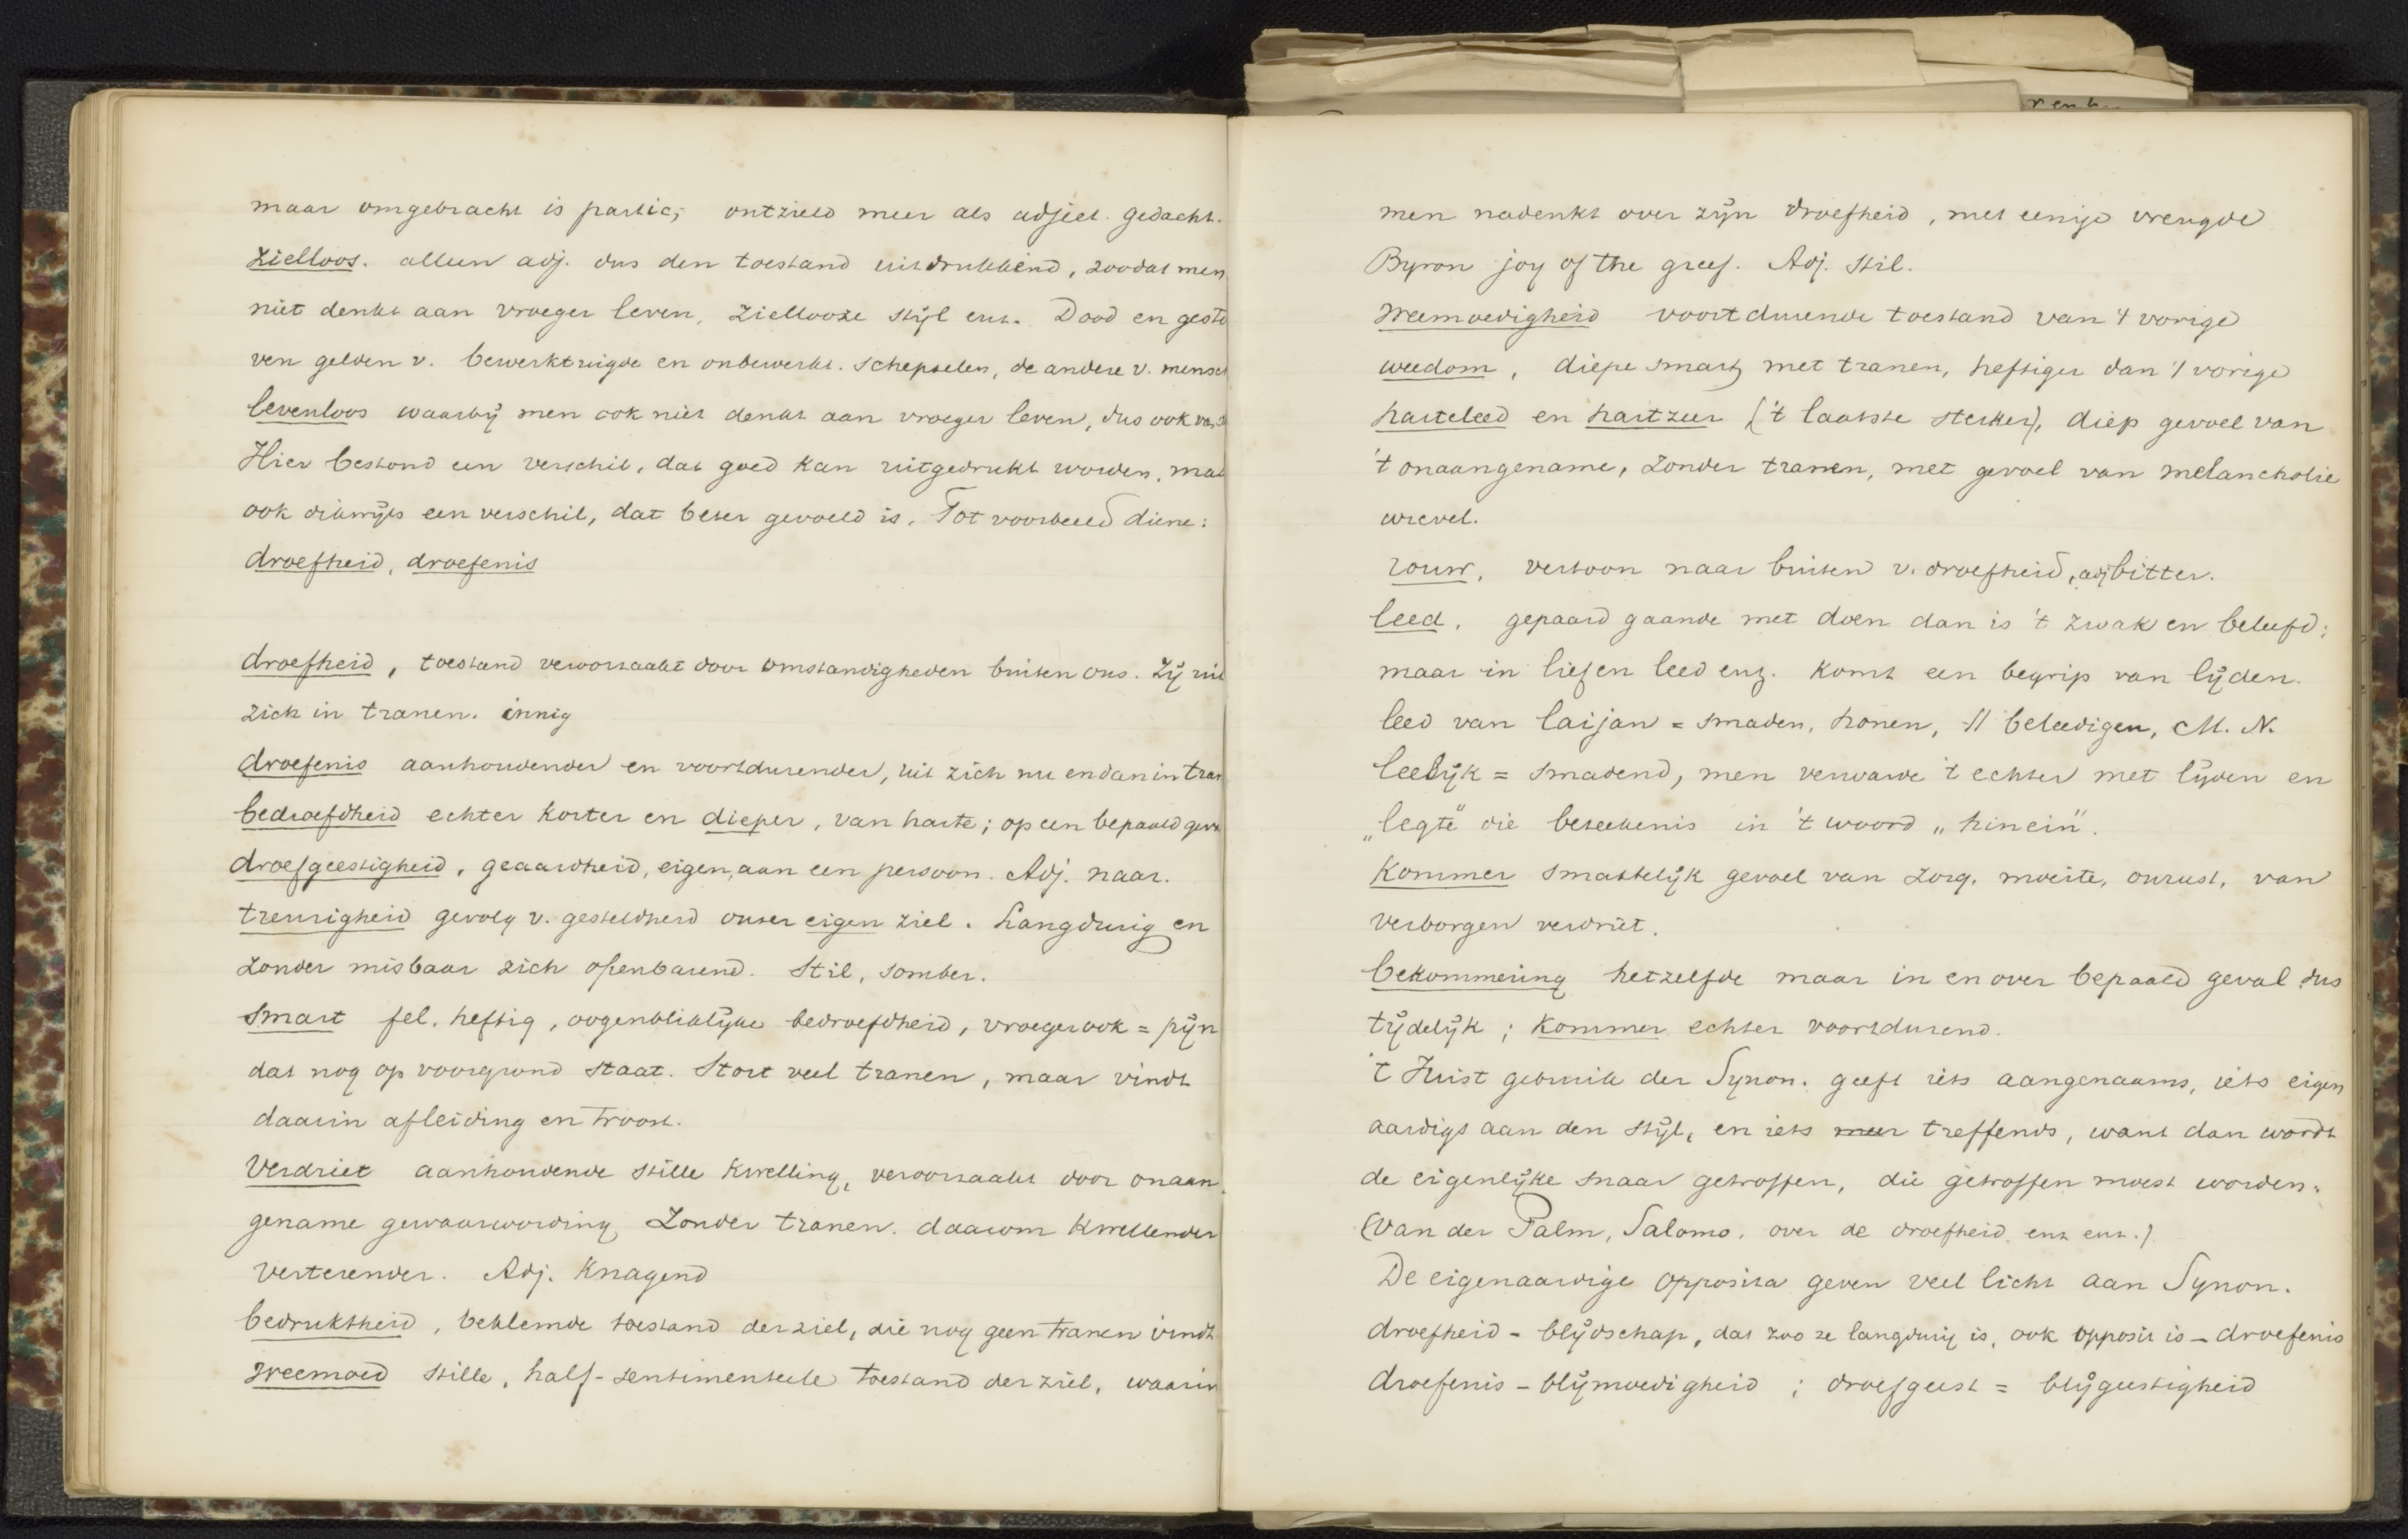 maar omgebracht is partic; ontzield meer als adject. gedacht.
Zielloos. alleen adj. dus den toestand uitdrukkend, zoodat men
niet denkt aan vroeger leven, Ziellooze stijl enz. Dood en gesto
ven gelden v. bewerktuigde en onbewerkt. schepselen, de andere v. mensch
levenloos waarbij men ook niet denkt aan vroeger leven, dus ook van
Hier bestond een verschil, dat goed kan uitgedrukt worden, maa
ook dikwijls een verschil, dat beter gevoeld is. Tot voorbeeld diene:
droefheid, droefenis
droefheid, toestand veroorzaakt door omstandigheden buiten ons. Zij uit
zich in tranen. innig
droefenis aanhoudender en voortdurender, uit zich nu en dan in tran
bedroefdheid echter korter en dieper, van harte; op een bepaald geva
droefgeestigheid, geaardheid, eigen aan een persoon. Adj. naar.
treurigheid gevolg v. gesteldheid onzer eigen ziel. Langdurig en
zonder misbaar zich openbarend. Stil, somber.
Smart fel, heftig, oogenblikkelijke bedroefdheid, vroeger ook = pijn
dat nog op voorgrond staat. Stort veel tranen, maar vindt
daarin afleiding en troost.
Verdriet aanhoudende stille kwelling, veroorzaakt door onaan
gename gewaarwording Zonder tranen. daarom kwellender
verterender. Adj. knagend
bedruktheid, beklemde toestand der ziel, die nog geen tranen vindt
weemoed stille, half-sentimenteele toestand der ziel, waarin
men nadenkt over zijn droefheid, met eenige vreugde
Byron joy of the greef. Adj. stil.
weemoedigheid voortdurende toestand van 't vorige
weedom, diepe smart met tranen, heftiger dan 't vorige
harteleed en hartzeer ('t laatste sterker), diep gevoel van
't onaangename, zonder tranen, met gevoel van melancholie
wrevel.
rouw, vertoon naar buiten v. droefheid, adj bitter.
leed, gepaard gaande met doen dan is 't zwak en beleefd;
maar in lief en leed enz. komt een begrip van lijden.
leed van laijan = smaden, honen, // beleedigen, M. N.
leelijk = smadend, men verwarde 't echter met lijden en
„legte" die beteekenis in 't woord „hinein".
Kommer smartelijk gevoel van zorg, moeite, onrust, van
verborgen verdriet.
bekommering hetzelfde maar in en over bepaald geval dus
tijdelijk; kommer echter voortdurend.
't Juist gebruik der Synon. geeft iets aangenaams, iets eigen
aardigs aan den stijl, en iets meer treffends, want dan wordt
de eigenlijke snaar getroffen, die getroffen moest worden.
(Van der Palm, Salomo, over de droefheid enz enz.)
De eigenaardige opposita geven veel licht aan Synon.
droefheid - blijdschap, dat zoo ze langdurig is, ook opposit is - droefenis
droefenis - blijmoedigheid; droefgeest = blijgeestigheid